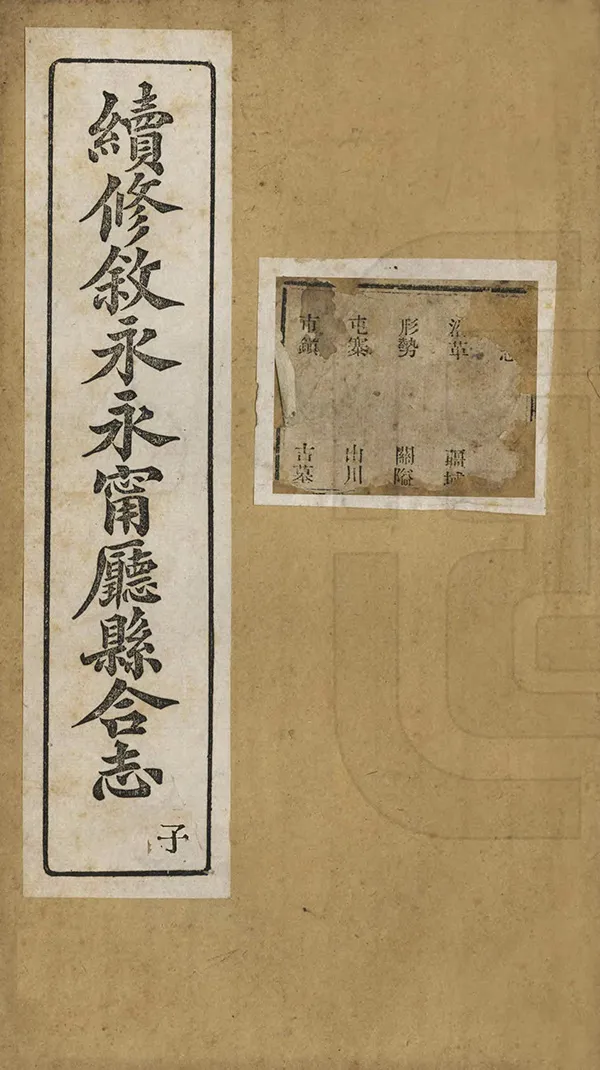 續修敘永永甯廳縣合志
子
志
沿革 疆域
形勢 關隘
屯寨 山川
市鎮 古墓